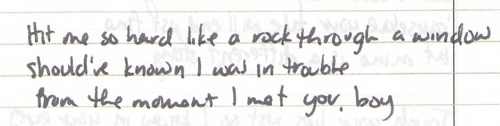 Hit me so hard like a rock through a window
should've known I was in trouble
from the moment I met you, boy